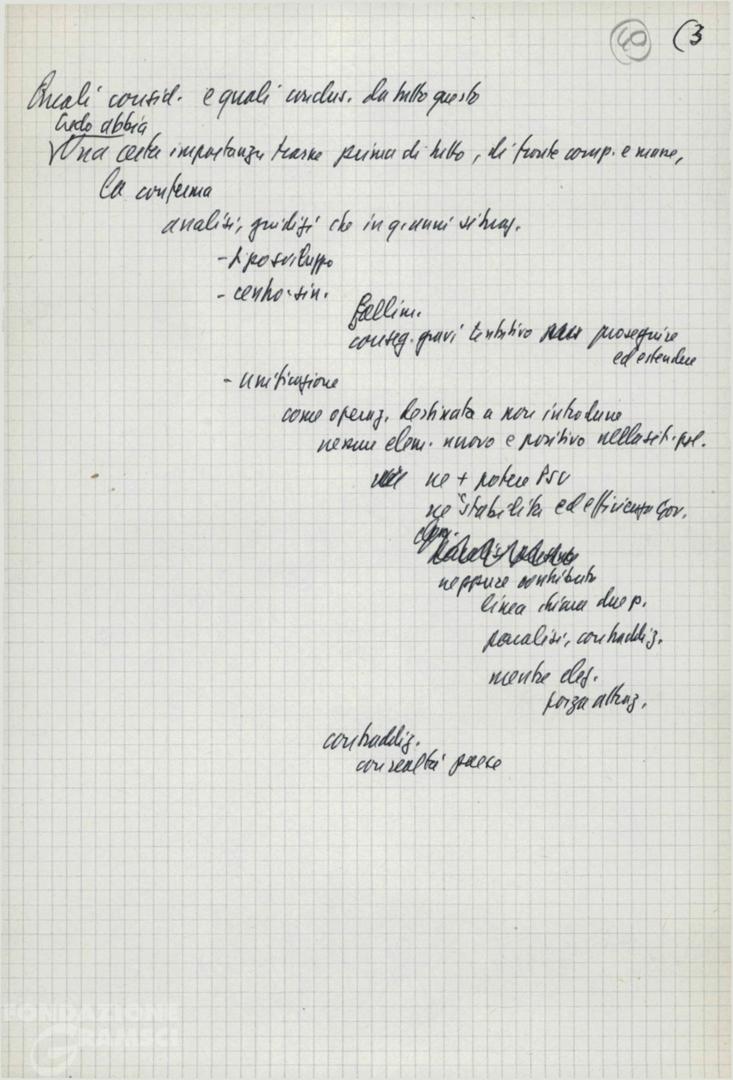 40 (3
Quali consid. e quali conclus. da tutto questo
Credo abbia
Una certa importanza trarne prima di tutto, di fronte comp. e mane,
la conferma
analisi, giudizi che in q. anni situaz.
- tipo sviluppo
- centro-sin.
Fallim.
conseg. gravi tentativo proseguire
ed estendere
- unificazione
come operaz. destinata a non introdurre
nessun elem. nuovo e positivo nella sit. pol.
ne + potere PSU
ne stabilità ed efficienza Gov.
neppure contributo
linea chiara due p.
paralisi, contraddiz.
mentre des.
forza attraz.
contraddiz.
con realtà paese
FONDAZIONE
GRAMSCI